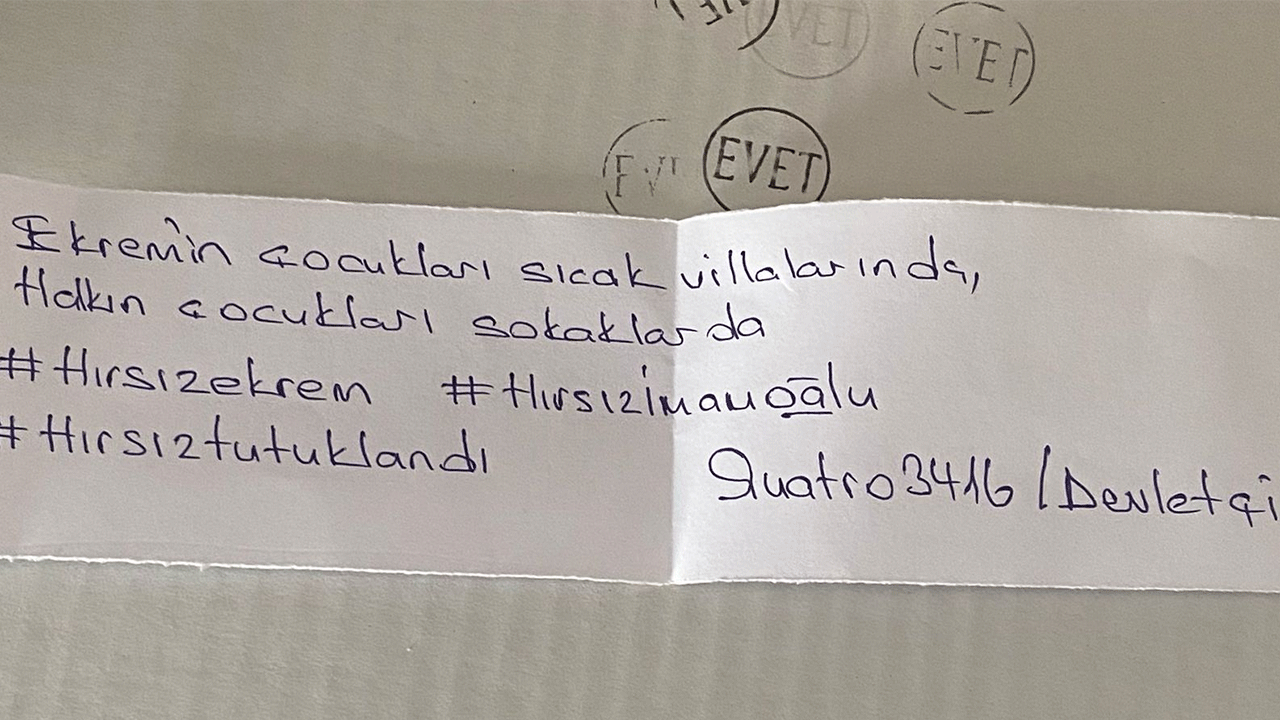 EVET
EVET
EVET
Ekrem'in çocukları sıcak villalarında,
Halkın çocukları sokaklarda
#Hırsızekrem #Hırsızimamoğlu
#Hırsıztutuklandı
Quatro3416 / Devletçi